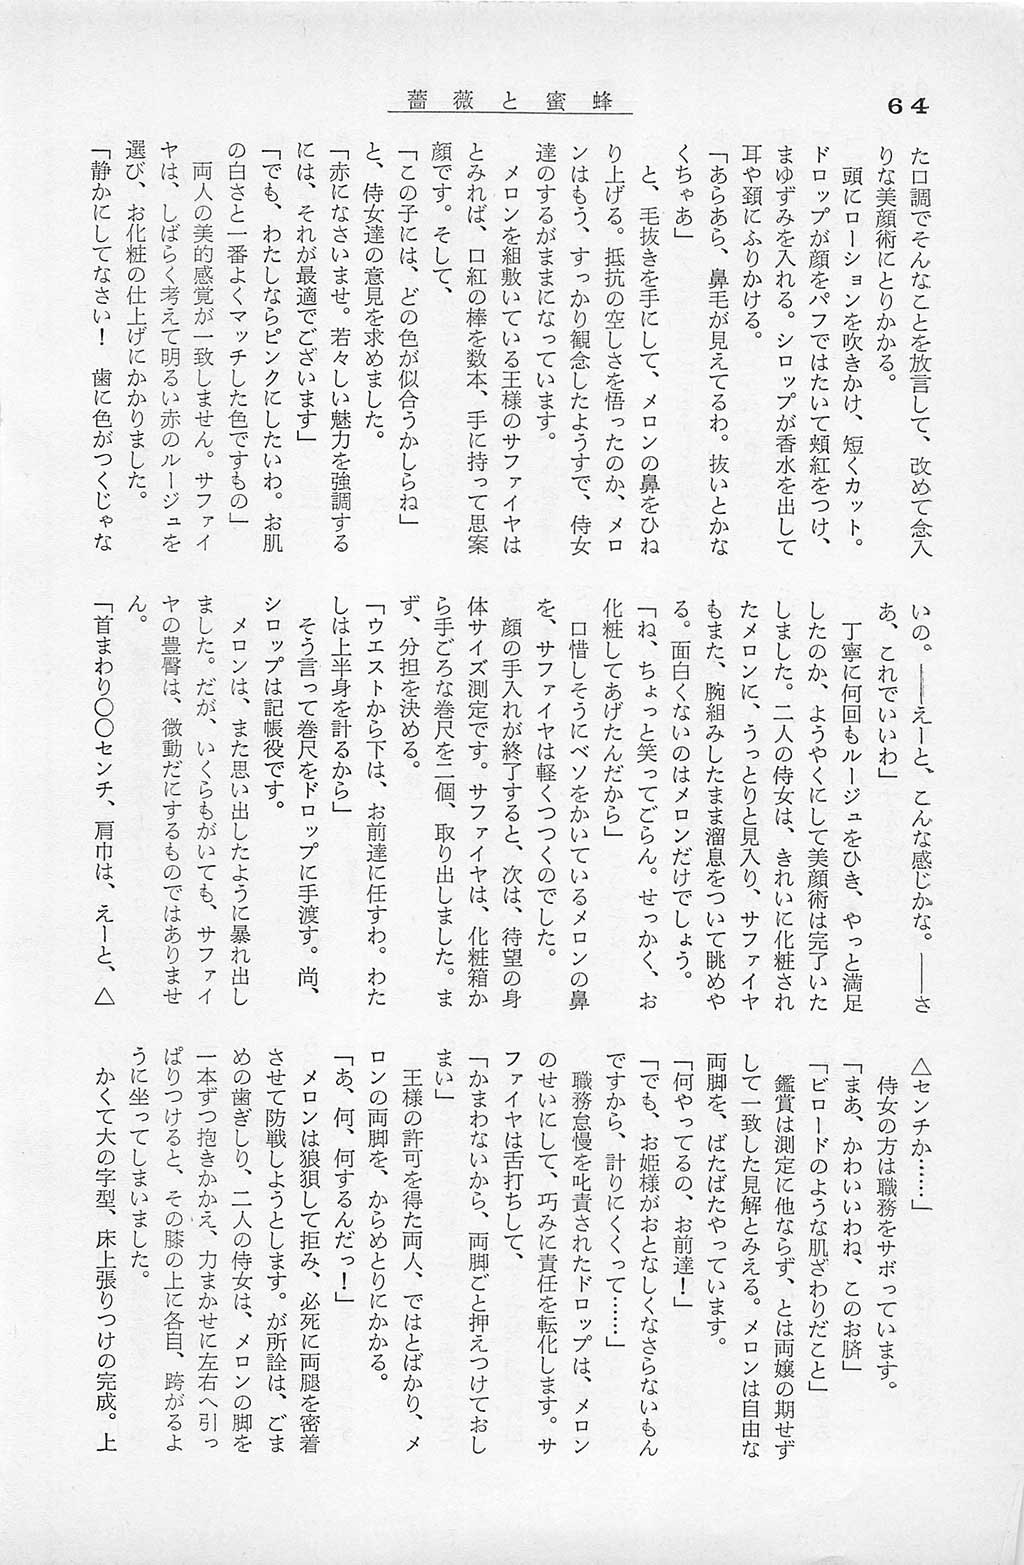 薔薇と蜜蜂
64
た口調でそんなことを放言して、改めて念入
りな美顔術にとりかかる。
頭にローションを吹きかけ、短くカット。
ドロップが顔をパフではたいて頬紅をつけ、
まゆずみを入れる。シロップが香水を出して
耳や頚にふりかける。
「あらあら、鼻毛が見えてるわ。抜いとかな
くちゃあ」
と、毛抜きを手にして、メロンの鼻をひね
り上げる。抵抗の空しさを悟ったのか、メロ
ンはもう、すっかり観念したようすで、侍女
達のするがままになっています。
メロンを組敷いている王様のサファイヤは
とみれば、口紅の棒を数本、手に持って思案
顔です。そして、
「この子には、どの色が似合うかしらね」
と、侍女達の意見を求めました。
「赤になさいませ。若々しい魅力を強調する
には、それが最適でございます」
「でも、わたしならピンクにしたいわ。お肌
の白さと一番よくマッチした色ですもの」
両人の美的感覚が一致しません。サファイ
ヤは、しばらく考えて明るい赤のルージュを
選び、お化粧の仕上げにかかりました。
「静かにしてなさい！　歯に色がつくじゃな
いの。――えーと、こんな感じかな。――さ
あ、これでいいわ」
丁寧に何回もルージュをひき、やっと満足
したのか、ようやくにして美顔術は完了いた
しました。二人の侍女は、きれいに化粧され
たメロンに、うっとりと見入り、サファイヤ
もまた、腕組みしたまま溜息をついて眺めや
る。面白くないのはメロンだけでしょう。
「ね、ちょっと笑ってごらん。せっかく、お
化粧してあげたんだから」
口惜しそうにベソをかいているメロンの鼻
を、サファイヤは軽くつつくのでした。
顔の手入れが終了すると、次は、待望の身
体サイズ測定です。サファイヤは、化粧箱か
ら手ごろな巻尺を二個、取り出しました。ま
ず、分担を決める。
「ウエストから下は、お前達に任すわ。わた
しは上半身を計るから」
そう言って巻尺をドロップに手渡す。尚、
シロップは記帳役です。
メロンは、また思い出したように暴れ出し
ました。だが、いくらもがいても、サファイ
ヤの豊臀は、微動だにするものではありませ
ん。
「首まわり〇〇センチ、肩巾は、えーと、△
△センチか……」
侍女の方は職務をサボっています。
「まあ、かわいいわね、このお臍」
「ビロードのような肌ざわりだこと」
鑑賞は測定に他ならず、とは両嬢の期せず
して一致した見解とみえる。メロンは自由な
両脚を、ばたばたやっています。
「何やってるの、お前達！」
「でも、お姫様がおとなしくなさらないもん
ですから、計りにくくって……」
職務怠慢を叱責されたドロップは、メロン
のせいにして、巧みに責任を転化します。サ
ファイヤは舌打ちして、
「かまわないから、両脚ごと押えつけておし
まい」
王様の許可を得た両人、ではとばかり、メ
ロンの両脚を、からめとりにかかる。
「あ、何、何するんだっ！」
メロンは狼狽して拒み、必死に両腿を密着
させて防戦しようとします。が所詮は、ごま
めの歯ぎしり、二人の侍女は、メロンの脚を
一本ずつ抱きかかえ、力まかせに左右へ引っ
ぱりつけると、その膝の上に各自、跨がるよ
うに坐ってしまいました。
かくて大の字型、床上張りつけの完成。上